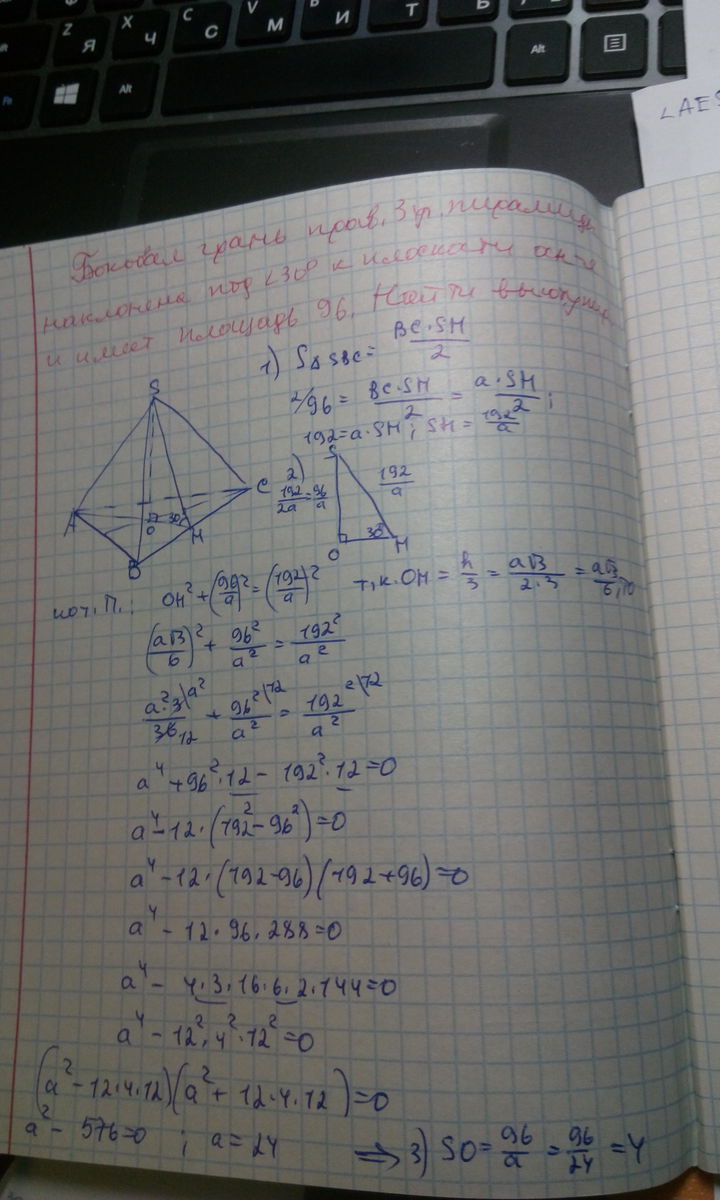 Z Я
X Ч
C С
V М
B И
N Т
Ь
Alt
Alt
Fn
∠AES
Боковая грань прав. 3уг. пирамиды
наклонена под ∠30° к плоскости осн-я
и имеет площадь 96. Найти высоту пир
1) S△SBC = BC·SH/2
2/96 = BC·SH/2 = a·SH/2;
192=a·SH; SH=192/a
S
A
B
C
O
30°
H
2) 192/2a=96/a
S
192/a
30°
O
H
по т. П.: OH²+(96/a)²=(192/a)² т.к. OH=h/3=a√3/2·3=a√3/6, то
(a√3/6)²+96²/a²=192²/a²
a²·3\a²/36 12+96²\12/a²=192²\12/a²
a⁴+96²·12-192²·12=0
a⁴-12·(192²-96²)=0
a⁴-12·(192-96)(192+96)=0
a⁴-12·96·288=0
a⁴-4·3·16·6·2·144=0
a⁴-12²·4²·12²=0
(a²-12·4·12)(a²+12·4·12)=0
a²-576=0 ; a=24 ⇒ 3) SO=96/a=96/24=4